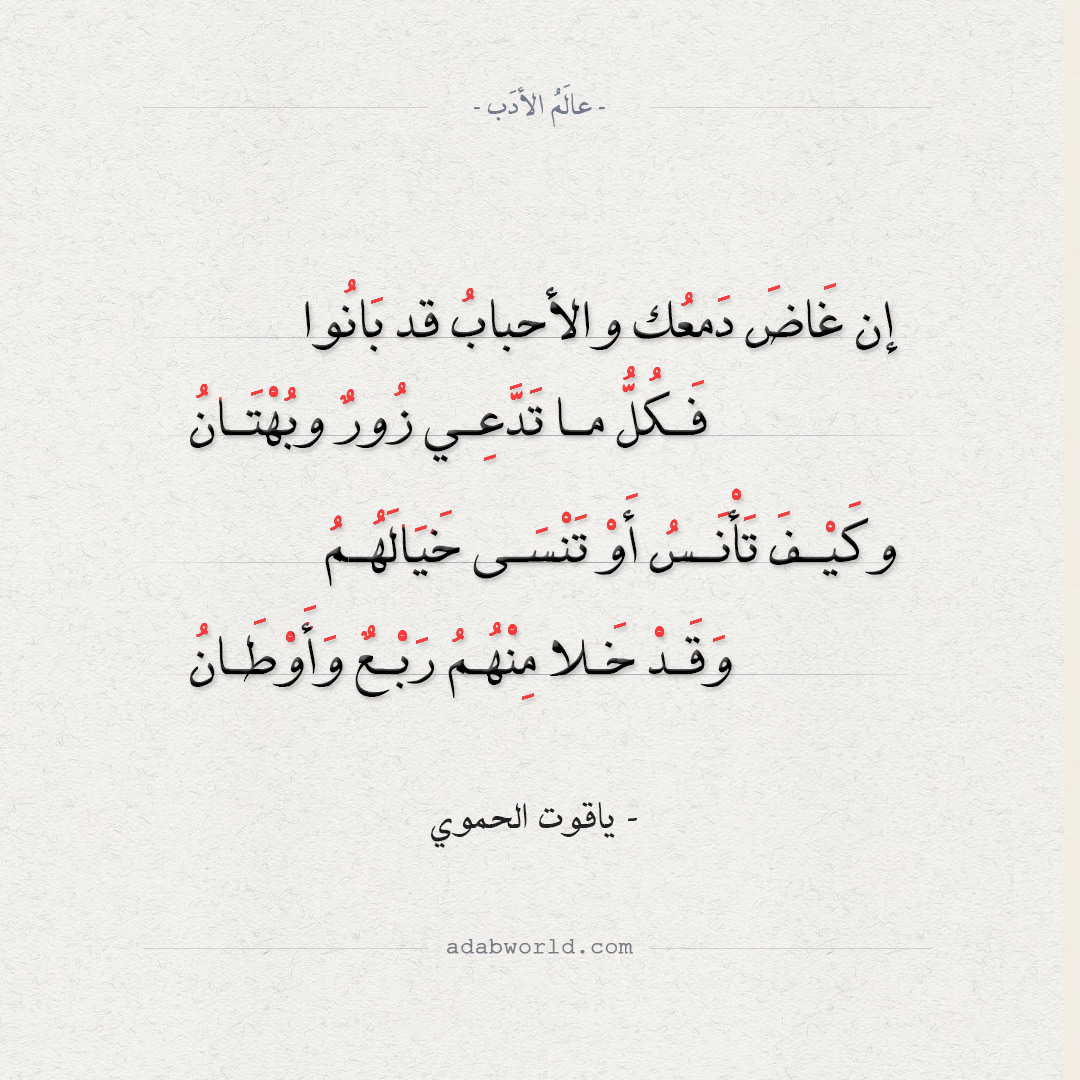 - عالَمُ الأدَب -
إن غَاضَ دَمعُك والأحبابُ قد بَانُوا
فَـكُلُّ مـا تَدَّعِـي زُورٌ وبُهْتَـانُ
وكَيْـفَ تَأْنَـسُ أَوْ تَنْسَـى خَيَالَهُـمُ
وَقَـدْ خَـلا مِنْهُـمُ رَبْـعٌ وَأَوْطَـانُ
- ياقوت الحموي
adabworld.com